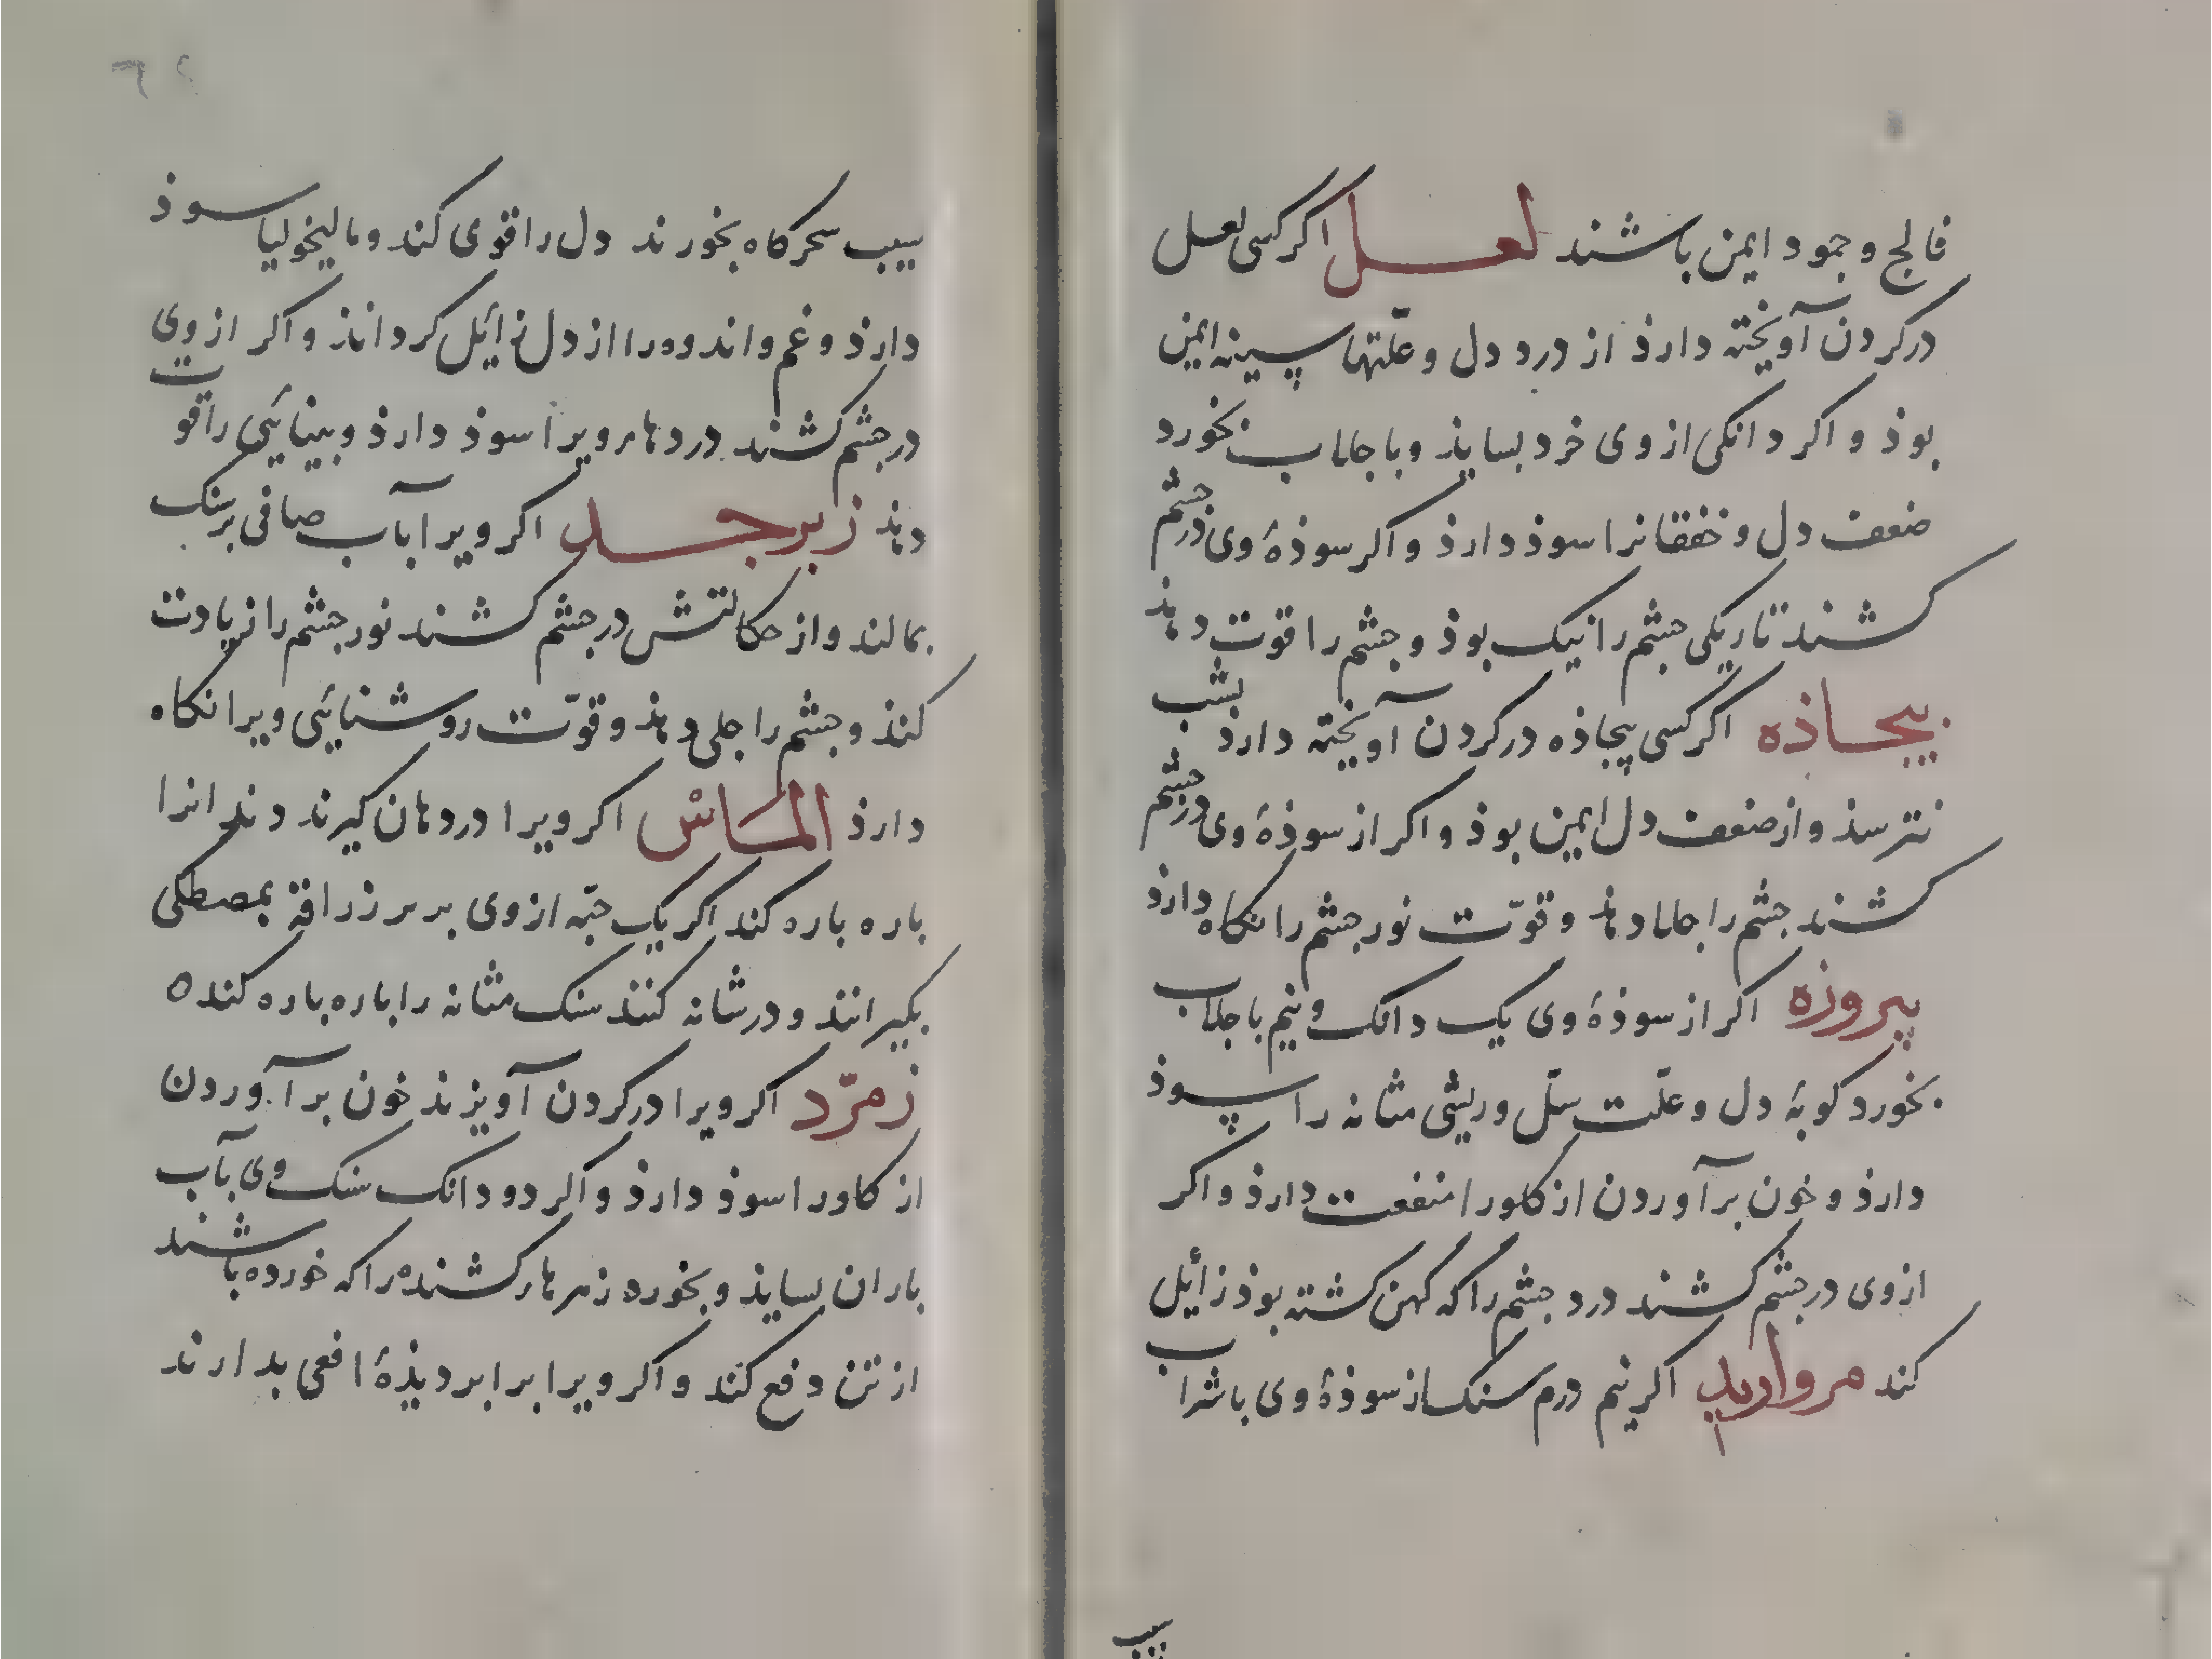 فالج و جمود ایمن باشند لعل اکر کسی لعل
درکردن آویخته دارذ از درد دل و علّتهاء سینه ایمن
بوذ و اکر دانکی ازوی خرد بسایذ و با جلاب بخورد
ضعف دل و خفقانرا سوذ دارذ و اکر سوذهٔ وی درجشم
کشند تاریکی جشم را نیک بوذ و جشم را قوت دهذ
بیجاذه اکر کسی بیجاذه درکردن آویخته دارذ بشب
نترسذ و از ضعف دل ایمن بوذ و اکر از سوذهٔ وی درجشم
کشند جشم را جلا دهذ و قوّت نور جشم را نکاه دارذ
پیروزه اکر از سوذهٔ وی یک دانک و نیم با جلاب
بخورد کوبهٔ دل و علّت سلّ و ریشی مثانه را سوذ
دارذ و خون برآوردن از کلو را منفعت دارذ و اکر
ازوی درجشم کشند درد جشم را که کهن کشته بوذ زائل
کند مروارید اکر نیم درم سنک از سوذهٔ وی با شراب
سیب
سیب سحرکاه بخورند دل را قوی کند و مالیخولیا سوذ
دارذ و غم و اندوه را از دل زائل کرداند و اکر ازوی
درجشم کشند دردهاء ویرا سوذ دارذ و بینائی را قوت
دهذ زبرجد اکر ویرا بآب صافی برسنک
بمالند و از حکالتش درجشم کشند نور جشم را زیادت
کنذ و جشم را جلی دهذ و قوّت روشنائی ویرا نکاه
دارذ الماس اکر ویرا در دهان کیرند دندانرا
باره باره کند اکر یک حبّه ازوی بر سر زراقه بمصطکی
بکیرانند و درمثانه کنند سنک مثانه را باره باره کند ه
زمرّد اکر ویرا درکردن آویزند خون برآوردن
از کلو را سوذ دارذ و اکر دو دانک سنک وی بآب
باران بسایذ و بخورد زهرهاء کشنده را که خورده باشند
از تن دفع کند و اکر ویرا برابر دیذهٔ افعی بدارند